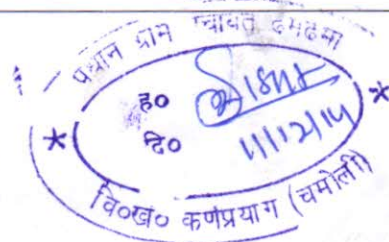 प्रधान ग्राम पंचायत दमदमा
ह०
दि० 11/12/14
वि०खं० कर्णप्रयाग (चमोली)